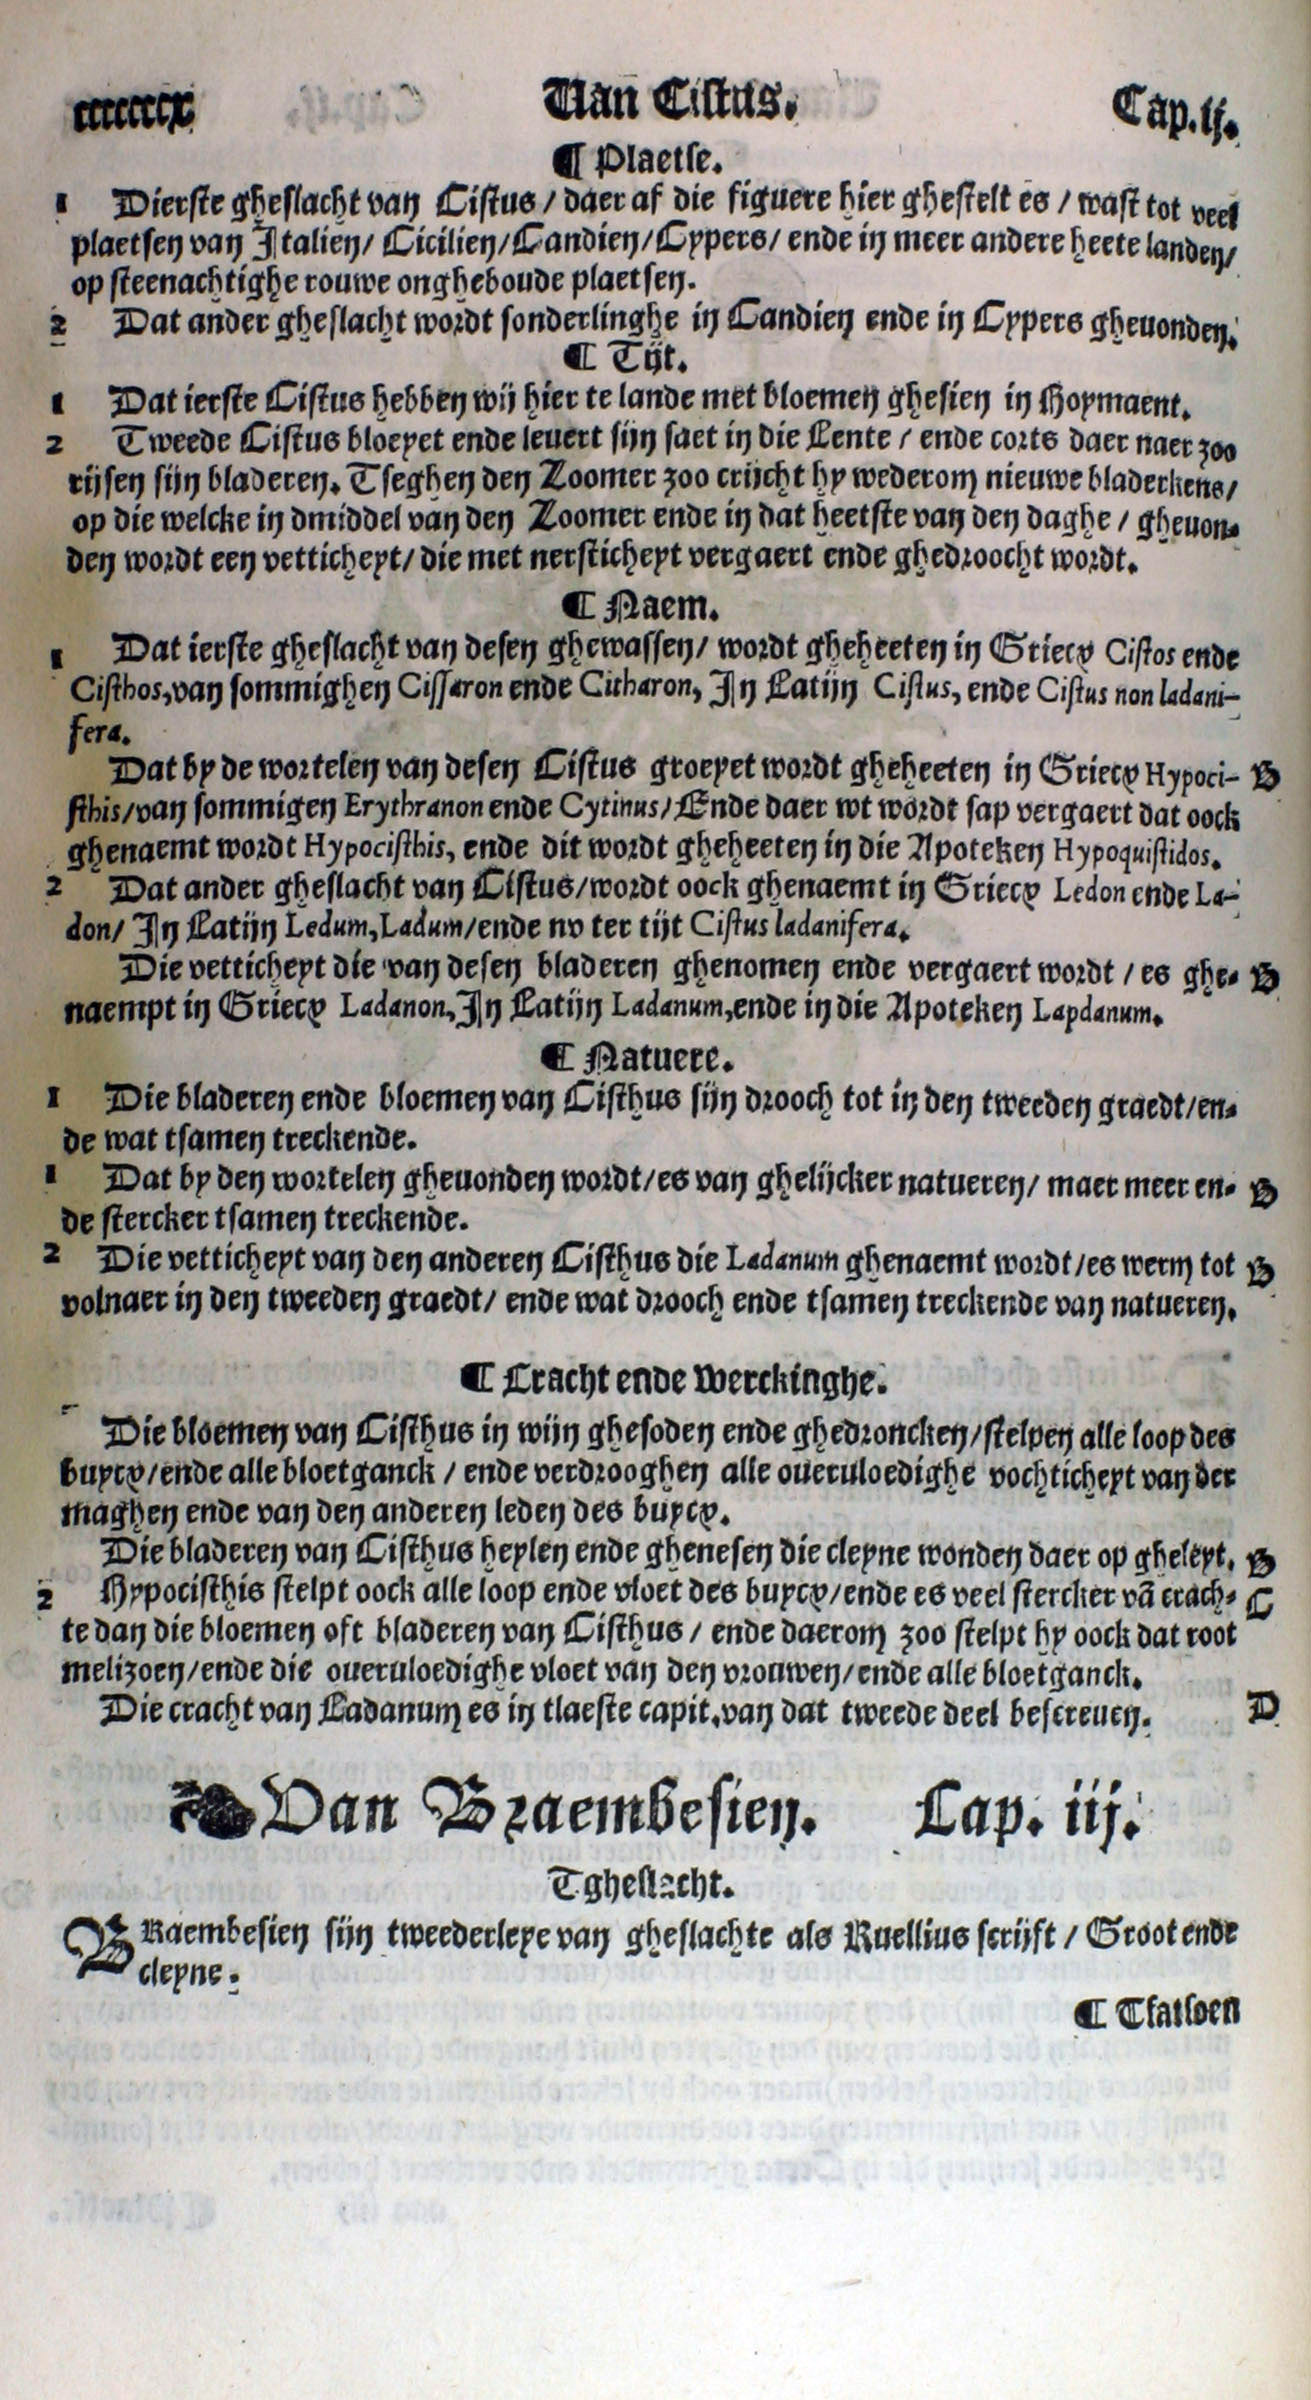 ccccccx Van Cistus. Cap.ij.
¶ Plaetse.
1 Dierste gheslacht van Cistus / daer af die figuere hier ghestelt es / wast tot veel
plaetsen van Italien/ Cicilien/Candien/Cypers/ ende in meer andere heete landen/
op steenachtighe rouwe ongheboude plaetsen.
2 Dat ander gheslacht wordt sonderlinghe in Candien ende in Cypers gheuonden.
¶ Tijt.
1 Dat ierste Cistus hebben wij hier te lande met bloemen ghesien in Hoymaent.
2 Tweede Cistus bloeyet ende leuert sijn saet in die Lente / ende corts daer naer zoo
rijsen sijn bladeren. Tseghen den Zoomer zoo crijcht hy wederom nieuwe bladerkens/
op die welcke in dmiddel van den Zoomer ende in dat heetste van den daghe / gheuon-
den wordt een vetticheyt/ die met nersticheyt vergaert ende ghedroocht wordt.
¶ Naem.
1 Dat ierste gheslacht van desen ghewassen/ wordt gheheeten in Griecx Cistos ende
Cisthos, van sommighen Cissaron ende Citharon, In Latijn Cistus, ende Cistus non ladani-
fera.
Dat by de wortelen van desen Cistus groeyet wordt gheheeten in Griecx Hypoci- B
sthis/van sommigen Erythranon ende Cytinus/Ende daer wt wordt sap vergaert dat oock
ghenaemt wordt Hypocisthis, ende dit wordt gheheeten in die Apoteken Hypoquistidos.
2 Dat ander gheslacht van Cistus/wordt oock ghenaemt in Griecx Ledon ende La-
don/ In Latijn Ledum, Ladum/ende nv ter tijt Cistus ladanifera.
Die vetticheyt die van desen bladeren ghenomen ende vergaert wordt / es ghe- B
naempt in Griecx Ladanon, In Latijn Ladanum, ende in die Apoteken Lapdanum.
¶ Natuere.
1 Die bladeren ende bloemen van Cisthus sijn drooch tot in den tweeden graedt/en-
de wat tsamen treckende.
1 Dat by den wortelen gheuonden wordt/es van ghelijcker natueren/ maer meer en- B
de stercker tsamen treckende.
2 Die vetticheyt van den anderen Cisthus die Ladanum ghenaemt wordt/es werm tot B
volnaer in den tweeden graedt/ ende wat drooch ende tsamen treckende van natueren.
¶ Cracht ende Werckinghe.
Die bloemen van Cisthus in wijn ghesoden ende ghedroncken/stelpen alle loop des
buycx/ende alle bloetganck / ende verdrooghen alle oueruloedighe vochticheyt van der
maghen ende van den anderen leden des buycx.
Die bladeren van Cisthus heylen ende ghenesen die cleyne wonden daer op gheleyt. B
2 Hypocisthis stelpt oock alle loop ende vloet des buycx/ende es veel stercker vā crach- C
te dan die bloemen oft bladeren van Cisthus / ende daerom zoo stelpt hy oock dat root
melizoen/ende die oueruloedighe vloet van den vrouwen/ende alle bloetganck.
Die cracht van Ladanum es in tlaeste capit. van dat tweede deel bescreuen. D
Van Braembesien. Cap. iij.
Tgheslacht.
BRaembesien sijn tweederleye van gheslachte als Ruellius scrijft / Groot ende
cleyne.
¶ Tfatsoen